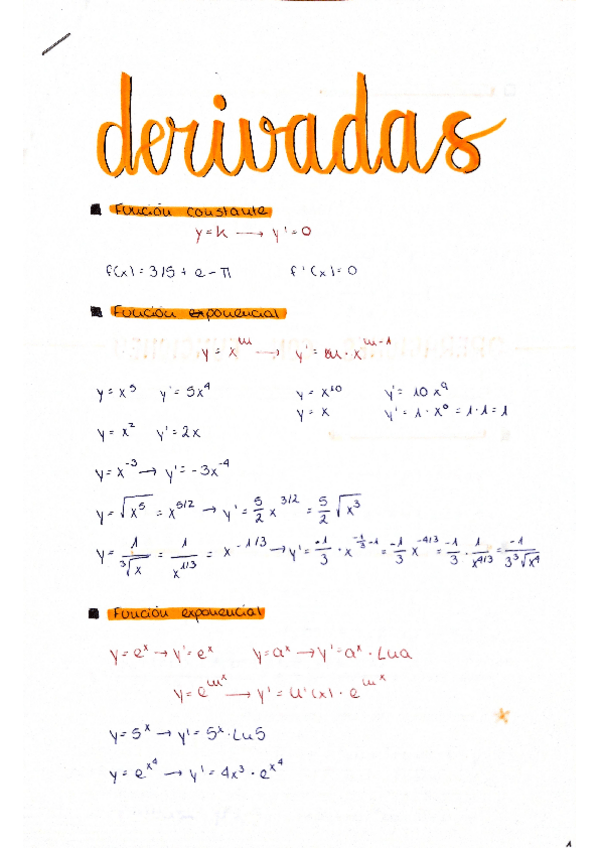 derivadas
Función constante
y=k → y'=0
f(x)=3/5+e-π f'(x)=0
Función exponencial
y=x^m → y'=m·x^m-1
y=x^5 y'=5x^4 y=x^10 y'=10x^9
y=x y'=1·x^0=1·1=1
y=x^2 y'=2x
y=x^-3 → y'=-3x^-4
y=√x^5=x^5/2 → y'=5/2 x^3/2=5/2 √x^3
y=1/3√x=1/x^1/3=x^-1/3 → y'=-1/3·x^-1/3-1=-1/3 x^-4/3=-1/3·1/x^4/3=-1/3 3√x^4
Función exponencial
y=e^x → y'=e^x y=a^x → y'=a^x·Lna
y=e^m^x → y'=u'(x)·e^m^x
y=5^x → y'=5^x·Ln5
y=e^x^4 → y'=4x^3·e^x^4
1